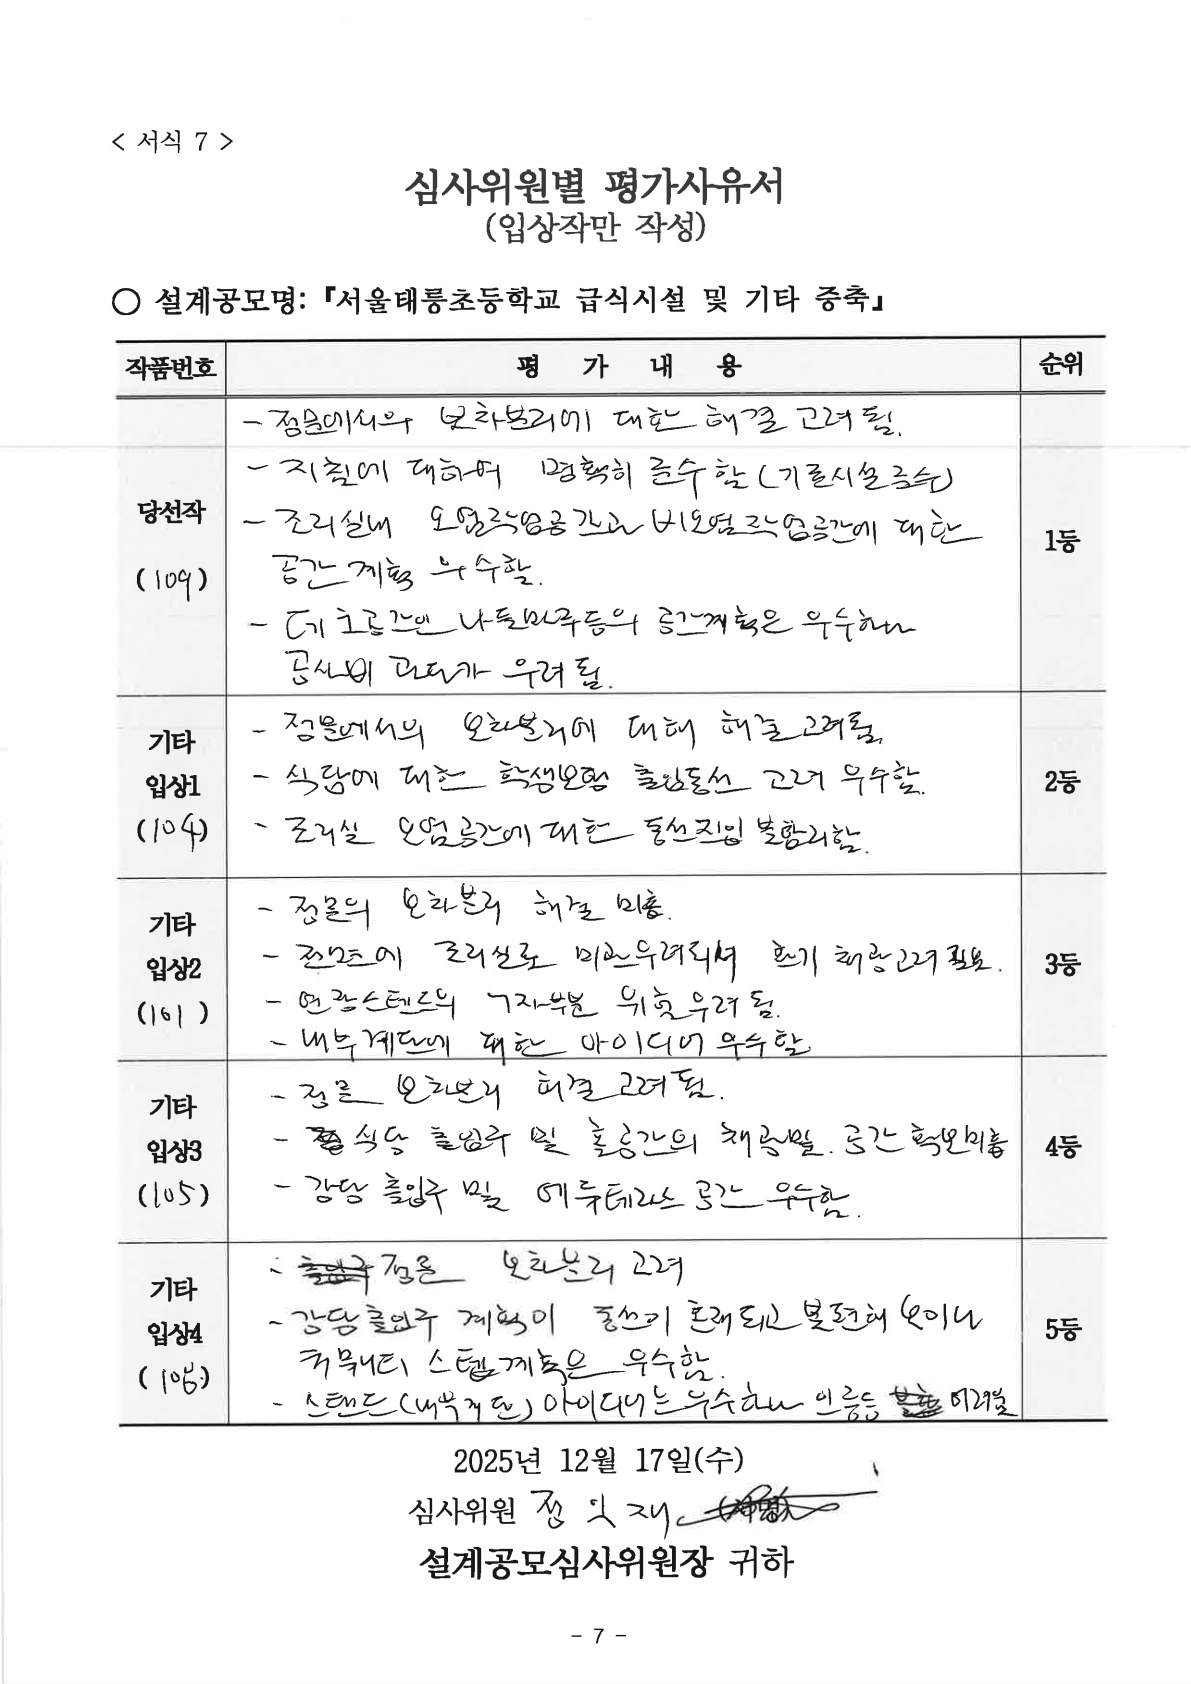 < 서식 7 >
심사위원별 평가사유서
(입상작만 작성)
○ 설계공모명:『서울태릉초등학교 급식시설 및 기타 증축』
작품번호 평 가 내 용 순위
당선작
(109)
- 정문에서의 보차분리에 대한 해결 고려됨.
- 지침에 대하여 명확히 준수함(기존시설 준수)
- 조리실내 오염작업공간과 비오염작업공간에 대한
공간계획 우수함.
- 데크공간인 나들마루등의 공간계획은 우수하나
공사비 과다가 우려됨.
1등
기타
입상1
(104)
- 정문에서의 보차분리에 대해 해결고려됨.
- 식당에 대한 학생보행 출입동선 고려 우수함.
- 조리실 오염공간에 대한 동선진입 불합리함.
2등
기타
입상2
(101)
- 정문의 보차분리 해결 미흡.
- 전면에 조리실로 미관우려되며 환기 채광고려 필요.
- 연결스탠드의 ㄱ자부분 위험우려됨.
- 내부계단에 대한 아이디어 우수함.
3등
기타
입상3
(105)
- 정문 보차분리 해결고려됨.
- 식당 출입구 및 홀공간의 채광및 공간 확보미흡
- 강당 출입구 및 에듀테라스 공간 우수함.
4등
기타
입상4
(106)
- 정문 보차분리 고려
- 강당출입구 계획이 동선이 혼래되고 불편해 보이나
커뮤니티 스텝계획은 우수함.
- 스탠드(내부계단) 아이디어는 우수하나 어려움
5등
2025년 12월 17일(수)
심사위원 정 재
설계공모심사위원장 귀하
- 7 -